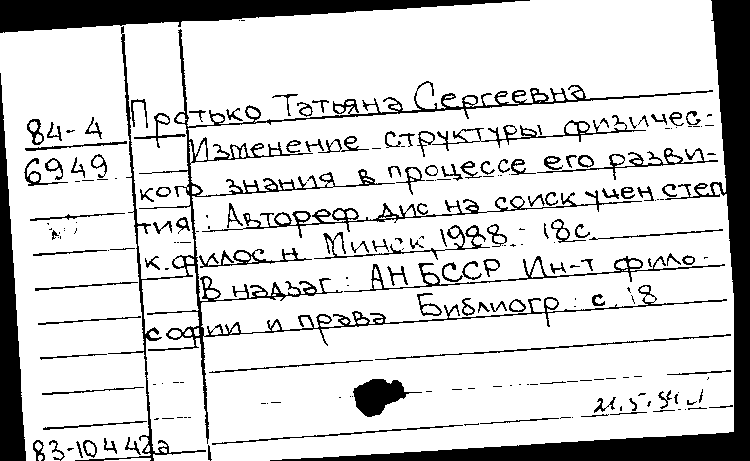 Протько, Татьяна Сергеевна
84-4
Изменение структуры физичес-
6949
кого знания в процессе его разви-
тия: Автореф. дис. на соиск учен степ
к. филос. н. Минск, 1988. - 18с.
В надзаг.: АН БССР Ин-т фило-
софии и права Библиогр.: с. 18
83-10442а